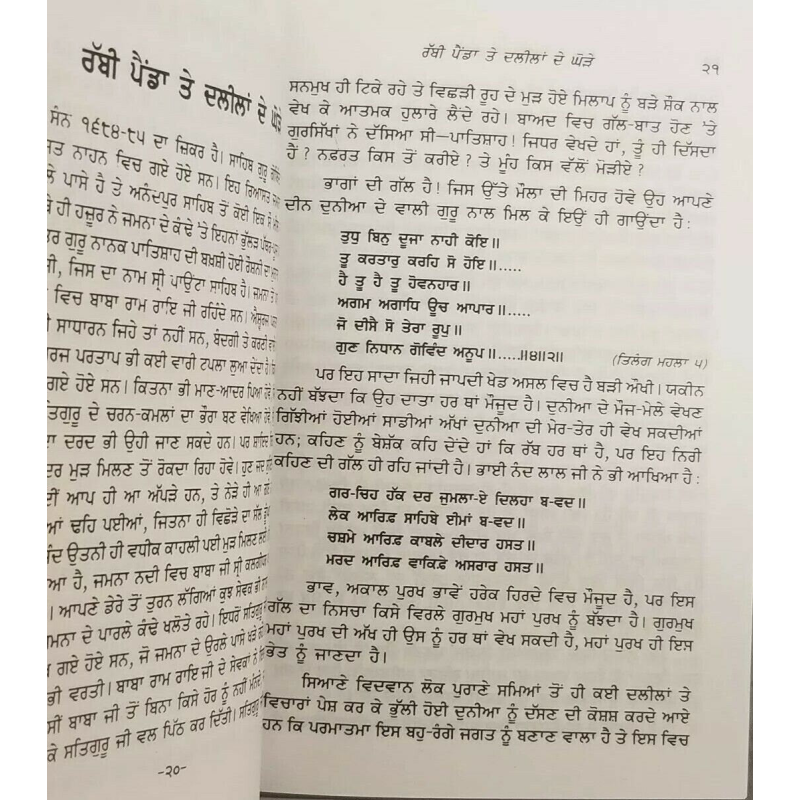 ਰੱਬੀ ਪੈਂਡਾ ਤੇ ਦਲੀਲਾਂ ਦੇ ਘੋੜੇ
ਸੰਨ ੧੬੮੪-੮੫ ਦਾ ਜ਼ਿਕਰ ਹੈ। ਸਾਹਿਬ ਗੁਰੂ
ਨਾਹਨ ਵਿਚ ਗਏ ਹੋਏ ਸਨ। ਇਹ ਰਿਆਸਤ
ਪਾਸੇ ਹੈ ਤੇ ਅਨੰਦਪੁਰ ਸਾਹਿਬ ਤੋਂ ਕੋਈ ਇਕ ਸੌ
ਹੀ ਹਜ਼ੂਰ ਨੇ ਜਮਨਾ ਦੇ ਕੰਢੇ 'ਤੇ ਇਹਨਾਂ ਭੁੱਲੜ
ਗੁਰੂ ਨਾਨਕ ਪਾਤਿਸ਼ਾਹ ਦੀ ਬਖ਼ਸ਼ੀ ਹੋਈ ਰੌਸ਼ਨੀ ਦਾ
ਜਿਸ ਦਾ ਨਾਮ ਸ੍ਰੀ ਪਾਉਂਟਾ ਸਾਹਿਬ ਹੈ। ਜਮਨਾ ਤੋਂ
ਵਿਚ ਬਾਬਾ ਰਾਮ ਰਾਇ ਜੀ ਰਹਿੰਦੇ ਸਨ।
ਸਾਧਾਰਨ ਜਿਹੇ ਤਾਂ ਨਹੀਂ ਸਨ, ਬੰਦਗੀ ਤੇ ਕਰਣੀ
ਪਰਤਾਪ ਭੀ ਕਈ ਵਾਰੀ ਟਪਲਾ ਲੁਆ ਦੇਂਦਾ ਹੈ।
ਗਏ ਹੋਏ ਸਨ। ਕਿਤਨਾ ਭੀ ਮਾਣ-ਆਦਰ ਪਿਆ ਹੋਵੇ
ਦੇ ਚਰਨ-ਕਮਲਾਂ ਦਾ ਭੌਰਾ ਬਣ ਵੇਖਿਆ ਹੋਵੇ
ਦਰਦ ਭੀ ਉਹੀ ਜਾਣ ਸਕਦੇ ਹਨ। ਪਰ
ਮੁੜ ਮਿਲਣ ਤੋਂ ਰੋਕਦਾ ਰਿਹਾ ਹੋਵੇ। ਹੁਣ ਜਦ
ਆਪ ਹੀ ਆ ਅੱਪੜੇ ਹਨ, ਤੇ ਨੇੜੇ ਹੀ ਆ
ਢਹਿ ਪਈਆਂ, ਜਿਤਨਾ ਹੀ ਵਿਛੋੜੇ ਦਾ ਸੱਲ
ਉਤਨੀ ਹੀ ਵਧੀਕ ਕਾਹਲੀ ਪਈ ਮੁੜ ਮਿਲਣ ਲਈ
ਹੈ, ਜਮਨਾ ਨਦੀ ਵਿਚ ਬਾਬਾ ਜੀ ਸ੍ਰੀ
ਆਪਣੇ ਡੇਰੇ ਤੋਂ ਤੁਰਨ ਲੱਗਿਆਂ ਕੁਝ ਸੇਵਕ ਭੀ
ਦੇ ਪਾਰਲੇ ਕੰਢੇ ਖਲੋਤੇ ਰਹੇ। ਇਧਰੋਂ
ਗਏ ਹੋਏ ਸਨ, ਜੋ ਜਮਨਾ ਦੇ ਉਰਲੇ ਪਾਸੇ ਖੜੇ
ਭੀ ਵਰਤੀ। ਬਾਬਾ ਰਾਮ ਰਾਇ ਜੀ ਦੇ ਸੇਵਕਾਂ ਨੇ
ਬਾਬਾ ਜੀ ਤੋਂ ਬਿਨਾ ਕਿਸੇ ਹੋਰ ਨੂੰ ਨਹੀਂ ਮੰਨਦੇ
ਕੇ ਸਤਿਗੁਰੂ ਜੀ ਵਲ ਪਿੱਠ ਕਰ ਦਿੱਤੀ।
-੨੦-
ਰੱਬੀ ਪੈਂਡਾ ਤੇ ਦਲੀਲਾਂ ਦੇ ਘੋੜੇ ੨੧
ਸਨਮੁਖ ਹੀ ਟਿਕੇ ਰਹੇ ਤੇ ਵਿਛੜੀ ਰੂਹ ਦੇ ਮੁੜ ਹੋਏ ਮਿਲਾਪ ਨੂੰ ਬੜੇ ਸ਼ੌਕ ਨਾਲ
ਵੇਖ ਕੇ ਆਤਮਕ ਹੁਲਾਰੇ ਲੈਂਦੇ ਰਹੇ। ਬਾਅਦ ਵਿਚ ਗੱਲ-ਬਾਤ ਹੋਣ 'ਤੇ
ਗੁਰਸਿੱਖਾਂ ਨੇ ਦੱਸਿਆ ਸੀ—ਪਾਤਿਸ਼ਾਹ! ਜਿਧਰ ਵੇਖਦੇ ਹਾਂ, ਤੂੰ ਹੀ ਦਿੱਸਦਾ
ਹੈਂ? ਨਫ਼ਰਤ ਕਿਸ ਤੋਂ ਕਰੀਏ? ਤੇ ਮੂੰਹ ਕਿਸ ਵੱਲੋਂ ਮੋੜੀਏ?
ਭਾਗਾਂ ਦੀ ਗੱਲ ਹੈ! ਜਿਸ ਉੱਤੇ ਮੌਲਾ ਦੀ ਮਿਹਰ ਹੋਵੇ ਉਹ ਆਪਣੇ
ਦੀਨ ਦੁਨੀਆ ਦੇ ਵਾਲੀ ਗੁਰੂ ਨਾਲ ਮਿਲ ਕੇ ਇਉਂ ਹੀ ਗਾਉਂਦਾ ਹੈ:
ਤੁਧੁ ਬਿਨੁ ਦੂਜਾ ਨਾਹੀ ਕੋਇ॥
ਤੂ ਕਰਤਾਰੁ ਕਰਹਿ ਸੋ ਹੋਇ॥.....
ਹੈ ਤੂ ਹੈ ਤੂ ਹੋਵਨਹਾਰ॥
ਅਗਮ ਅਗਾਧਿ ਊਚ ਆਪਾਰ॥.....
ਜੋ ਦੀਸੈ ਸੋ ਤੇਰਾ ਰੂਪੁ॥
ਗੁਣ ਨਿਧਾਨ ਗੋਵਿੰਦ ਅਨੂਪ॥.....॥੪॥੨॥ (ਤਿਲੰਗ ਮਹਲਾ ੫)
ਪਰ ਇਹ ਸਾਦਾ ਜਿਹੀ ਜਾਪਦੀ ਖੇਡ ਅਸਲ ਵਿਚ ਹੈ ਬੜੀ ਔਖੀ। ਯਕੀਨ
ਨਹੀਂ ਬੱਝਦਾ ਕਿ ਉਹ ਦਾਤਾ ਹਰ ਥਾਂ ਮੌਜੂਦ ਹੈ। ਦੁਨੀਆ ਦੇ ਮੌਜ-ਮੇਲੇ ਵੇਖਣ
ਗਿੱਝੀਆਂ ਹੋਈਆਂ ਸਾਡੀਆਂ ਅੱਖਾਂ ਦੁਨੀਆ ਦੀ ਮੇਰ-ਤੇਰ ਹੀ ਵੇਖ ਸਕਦੀਆਂ
ਹਨ; ਕਹਿਣ ਨੂੰ ਬੇਸ਼ੱਕ ਕਹਿ ਦੇਂਦੇ ਹਾਂ ਕਿ ਰੱਬ ਹਰ ਥਾਂ ਹੈ, ਪਰ ਇਹ ਨਿਰੀ
ਕਹਿਣ ਦੀ ਗੱਲ ਹੀ ਰਹਿ ਜਾਂਦੀ ਹੈ। ਭਾਈ ਨੰਦ ਲਾਲ ਜੀ ਨੇ ਭੀ ਆਖਿਆ ਹੈ:
ਗਰ-ਚਿਹ ਹੱਕ ਦਰ ਜੁਮਲਾ-ਏ ਦਿਲਹਾ ਬ-ਵਦ॥
ਲੇਕ ਆਰਿਫ਼ ਸਾਹਿਬੇ ਈਮਾਂ ਬ-ਵਦ॥
ਚਸ਼ਮੇ ਆਰਿਫ਼ ਕਾਬਲੇ ਦੀਦਾਰ ਹਸਤ॥
ਮਰਦ ਆਰਿਫ਼ ਵਾਕਿਫ਼ੇ ਅਸਰਾਰ ਹਸਤ॥
ਭਾਵ, ਅਕਾਲ ਪੁਰਖ ਭਾਵੇਂ ਹਰੇਕ ਹਿਰਦੇ ਵਿਚ ਮੌਜੂਦ ਹੈ, ਪਰ ਇਸ
ਗੱਲ ਦਾ ਨਿਸਚਾ ਕਿਸੇ ਵਿਰਲੇ ਗੁਰਮੁਖ ਮਹਾਂ ਪੁਰਖ ਨੂੰ ਬੱਝਦਾ ਹੈ। ਗੁਰਮੁਖ
ਮਹਾਂ ਪੁਰਖ ਦੀ ਅੱਖ ਹੀ ਉਸ ਨੂੰ ਹਰ ਥਾਂ ਵੇਖ ਸਕਦੀ ਹੈ, ਮਹਾਂ ਪੁਰਖ ਹੀ ਇਸ
ਭੇਤ ਨੂੰ ਜਾਣਦਾ ਹੈ।
ਸਿਆਣੇ ਵਿਦਵਾਨ ਲੋਕ ਪੁਰਾਣੇ ਸਮਿਆਂ ਤੋਂ ਹੀ ਕਈ ਦਲੀਲਾਂ ਤੇ
ਵਿਚਾਰਾਂ ਪੇਸ਼ ਕਰ ਕੇ ਭੁੱਲੀ ਹੋਈ ਦੁਨੀਆ ਨੂੰ ਦੱਸਣ ਦੀ ਕੋਸ਼ਸ਼ ਕਰਦੇ ਆਏ
ਹਨ ਕਿ ਪਰਮਾਤਮਾ ਇਸ ਬਹੁ-ਰੰਗੇ ਜਗਤ ਨੂੰ ਬਣਾਣ ਵਾਲਾ ਹੈ ਤੇ ਇਸ ਵਿਚ